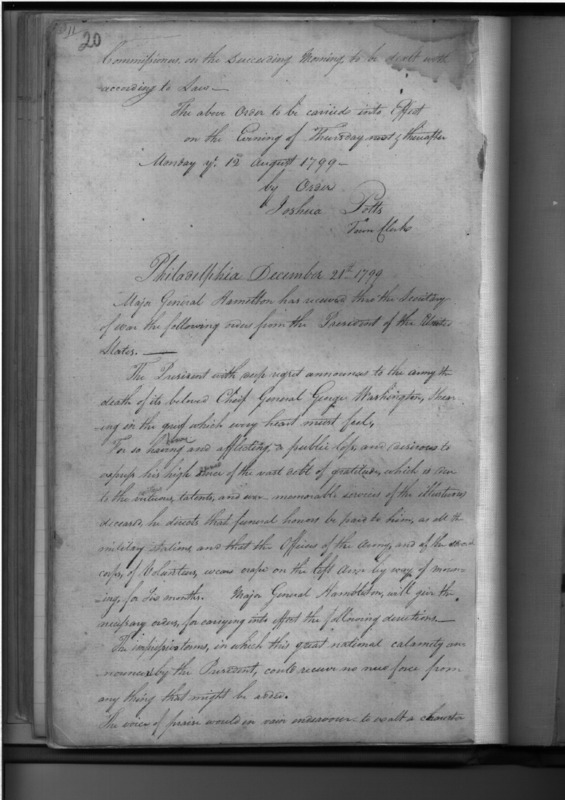 20
Commissioners on the succeeding Morning, to be dealt with
according to Law —
The above Order to be carried into Effect
on the Evening of Thursday next & thereafter
Monday ye. 12 August 1799 —
by Order
Joshua Potts
Town Clerk
Philadelphia December 21st 1799
Major General Hamelton has received thro the Secretary
of war the following orders from the President of the United
States. —
The President with deep regret announces to the army the
death of its beloved Chief General George Washington, Shar-
ing in the grief which every heart must feel,
For so heavy and afflicting, a public loss, and desirous to
express his high sense of the vast debt of gratitude, which is due
to the virtues, talents, and ever memorable services of the illustrious
deceased, he directs that funeral honors be paid to him, at all the
military stations, and that the Officers of the Army, and of the
corps, of Volunteers, wear crape on the left arm by way of mourn-
ing, for Six months. Major General Hamelton, will give the
necessary orders, for carrying into effort the following directions. —
The impressive terms, in which this great national calamity an-
nounced by the President, could receive no new force from
any thing that might be added.
The voice of praise would in vain endeavour to exalt a character